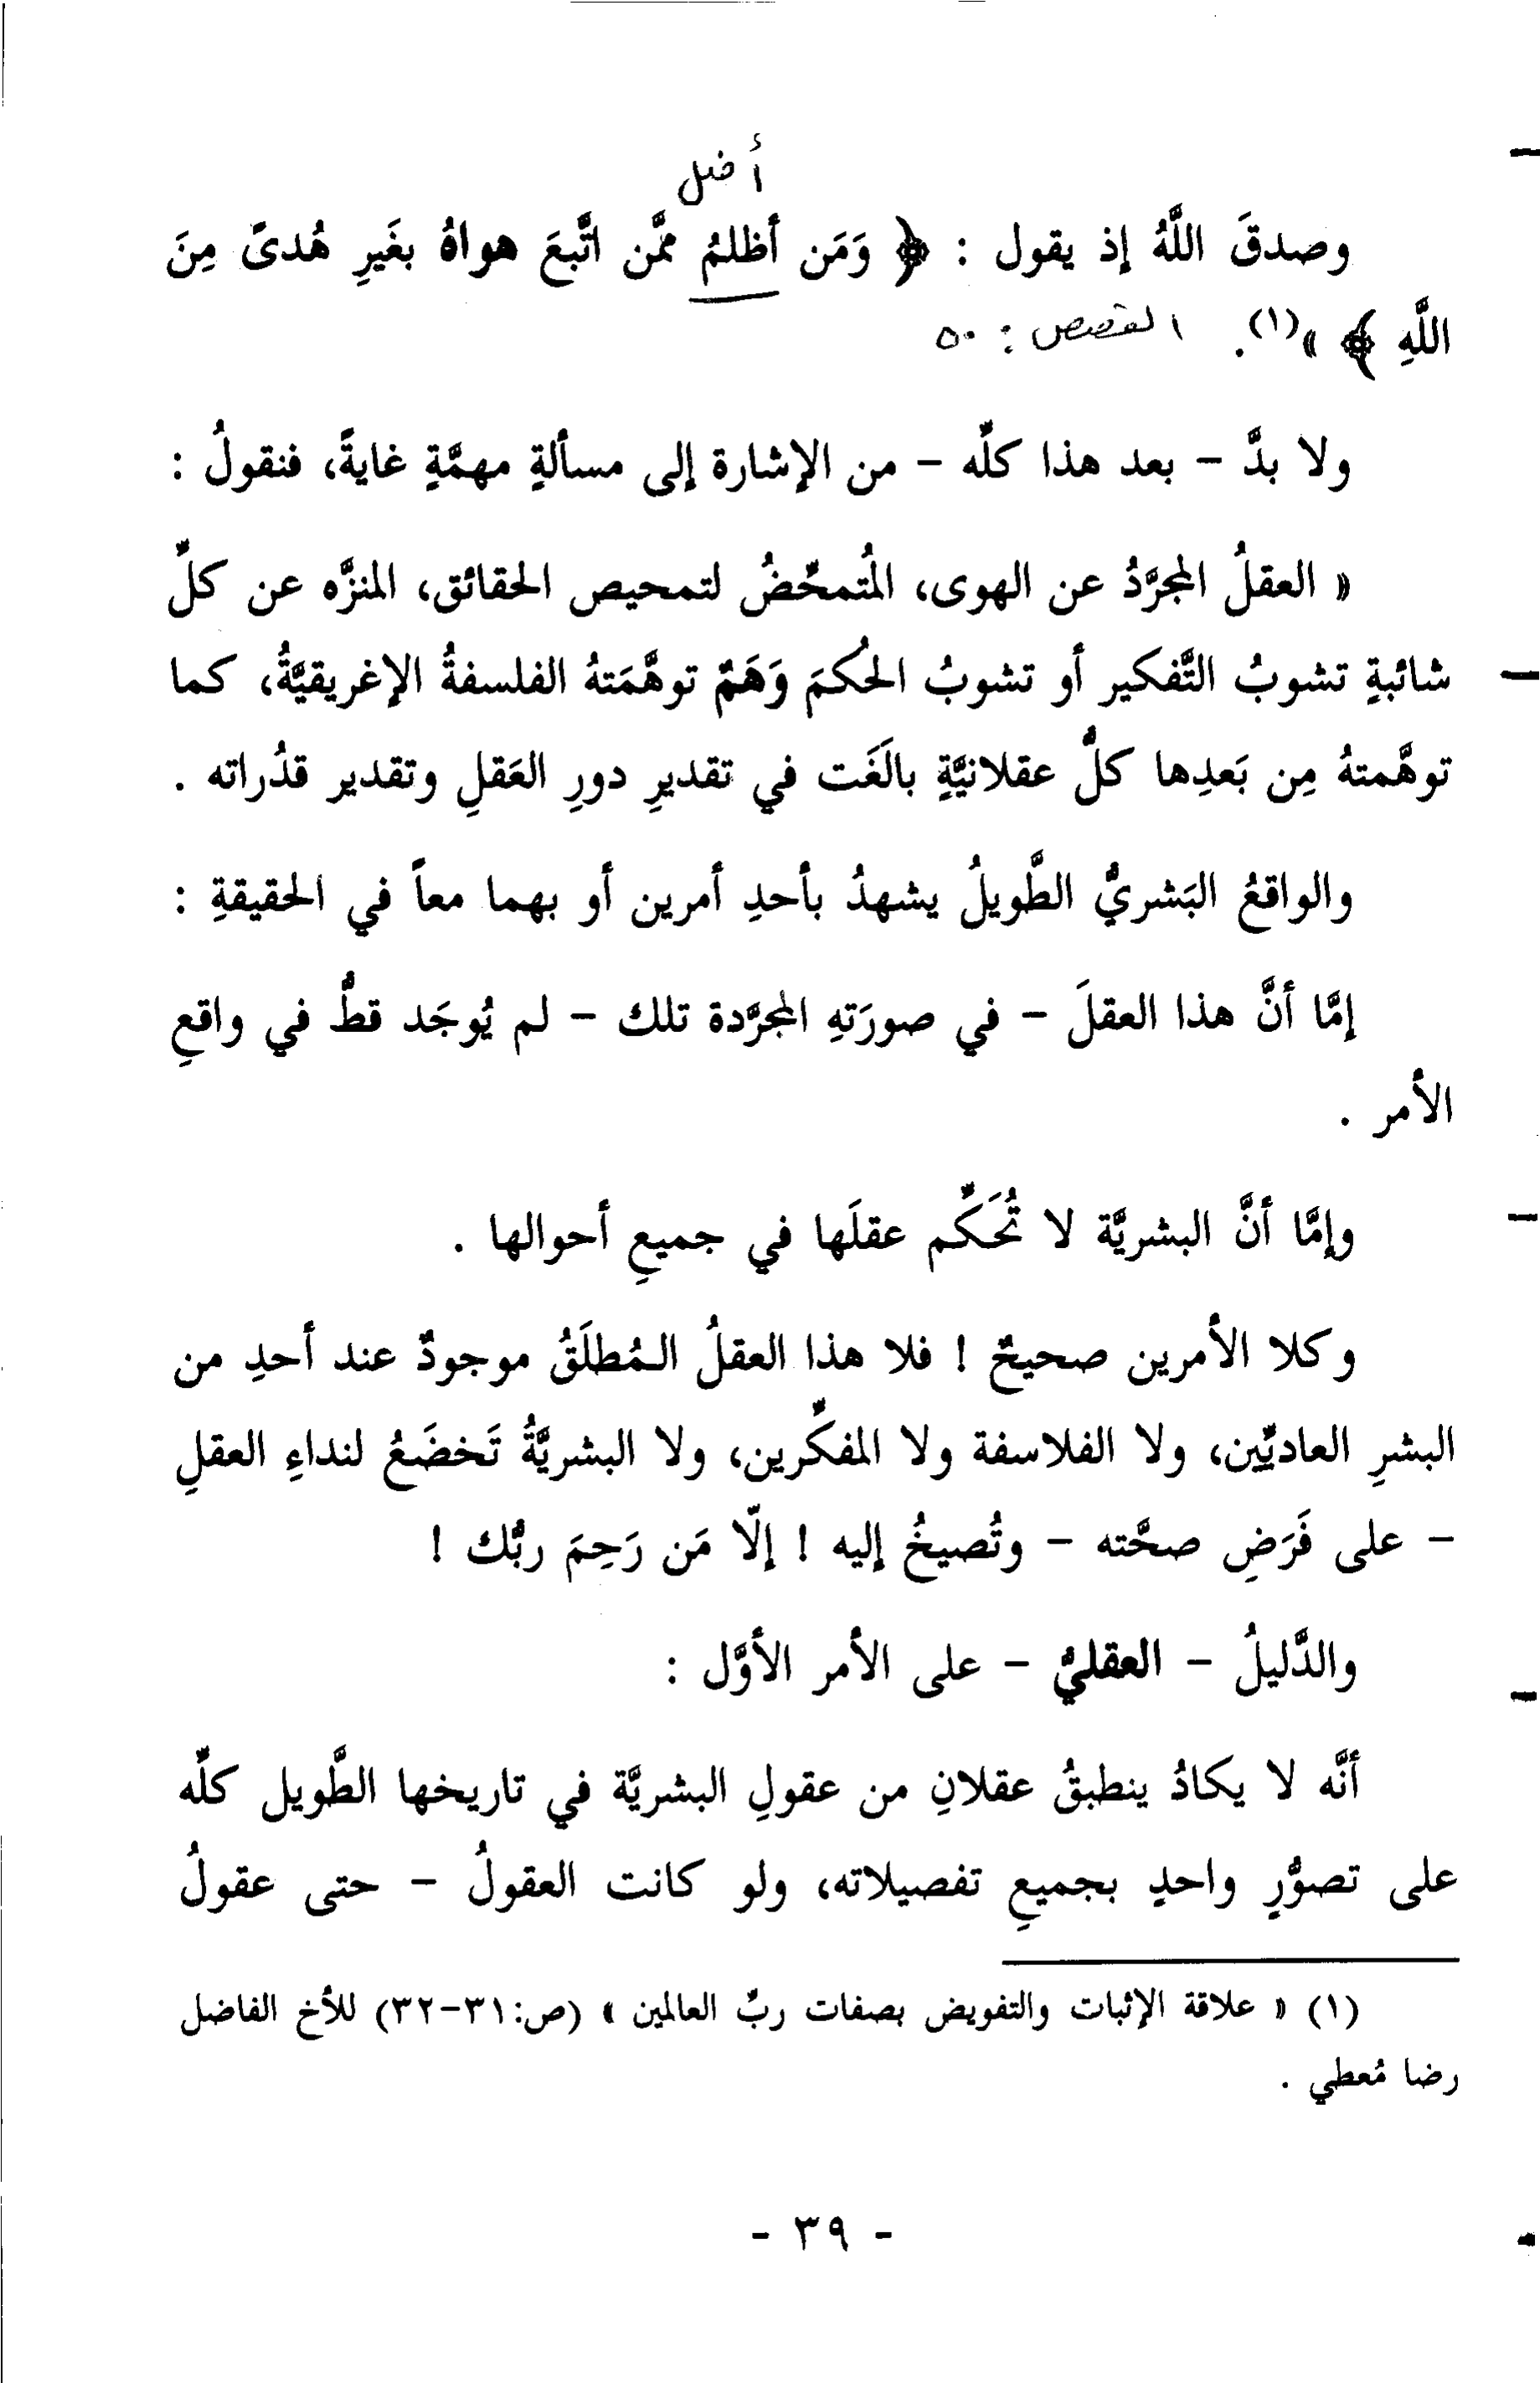 أضل
وصدقَ اللَّهُ إذ يقول : ﴿ وَمَن أظلمُ ممَّن اتَّبعَ هواهُ بغَيرِ هُدىً مِنَ
اللَّهِ ﴾ »(١). القصص : ٥٠
ولا بدَّ – بعد هذا كلِّه – من الإشارة إلى مسألةٍ مهمَّةٍ غايةً، فنقولُ :
« العقلُ المجرَّدُ عن الهوى، المُتمحِّضُ لتمحيص الحقائق، المنزَّه عن كلِّ
شائبةٍ تشوبُ التَّفكير أو تشوبُ الحُكمَ وَهَمٌ توهَّمَتهُ الفلسفةُ الإغريقيَّةُ، كما
توهَّمتهُ مِن بَعدِها كلُّ عقلانيَّةٍ بالَغَت في تقديرِ دورِ العَقلِ وتقدير قدُراته .
والواقعُ البَشريُّ الطَّويلُ يشهدُ بأحدِ أمرين أو بهما معاً في الحقيقةِ :
إمَّا أنَّ هذا العقلَ – في صورَتهِ المجرَّدة تلك – لم يُوجَد قطُّ في واقعِ
الأمر .
وإمَّا أنَّ البشريَّة لا تُحَكِّم عقلَها في جميعِ أحوالها .
وكلا الأمرين صحيحٌ ! فلا هذا العقلُ المُطلَقُ موجودٌ عند أحدِ من
البشرِ العاديِّين، ولا الفلاسفة ولا المفكِّرين، ولا البشريَّةُ تَخضَعُ لنداءِ العقلِ
– على فَرَضِ صحَّته – وتُصيخُ إليه ! إلّا مَن رَحِمَ ربُّك !
والدَّليلُ – العقليُّ – على الأمر الأوَّل :
أنَّه لا يكادُ ينطبقُ عقلانِ من عقولِ البشريَّة في تاريخها الطَّويل كلِّه
على تصوُّرٍ واحدٍ بجميعِ تفصيلاته، ولو كانت العقولُ – حتى عقولُ
(١) « علاقة الإثبات والتفويض بصفات ربِّ العالمين » (ص:٣١-٣٢) للأخ الفاضل
رضا مُعطي .
- ٣٩ -